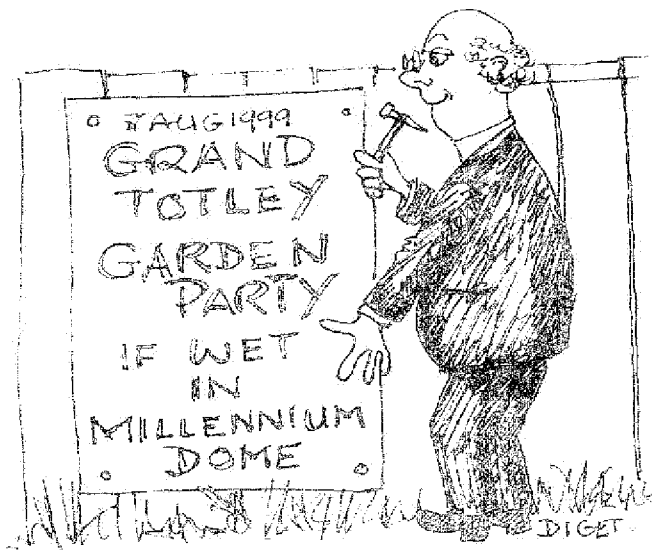 AUG 1999
GRAND
TOTLEY
GARDEN
PARTY
IF WET
IN
MILLENNIUM
DOME
DIGET